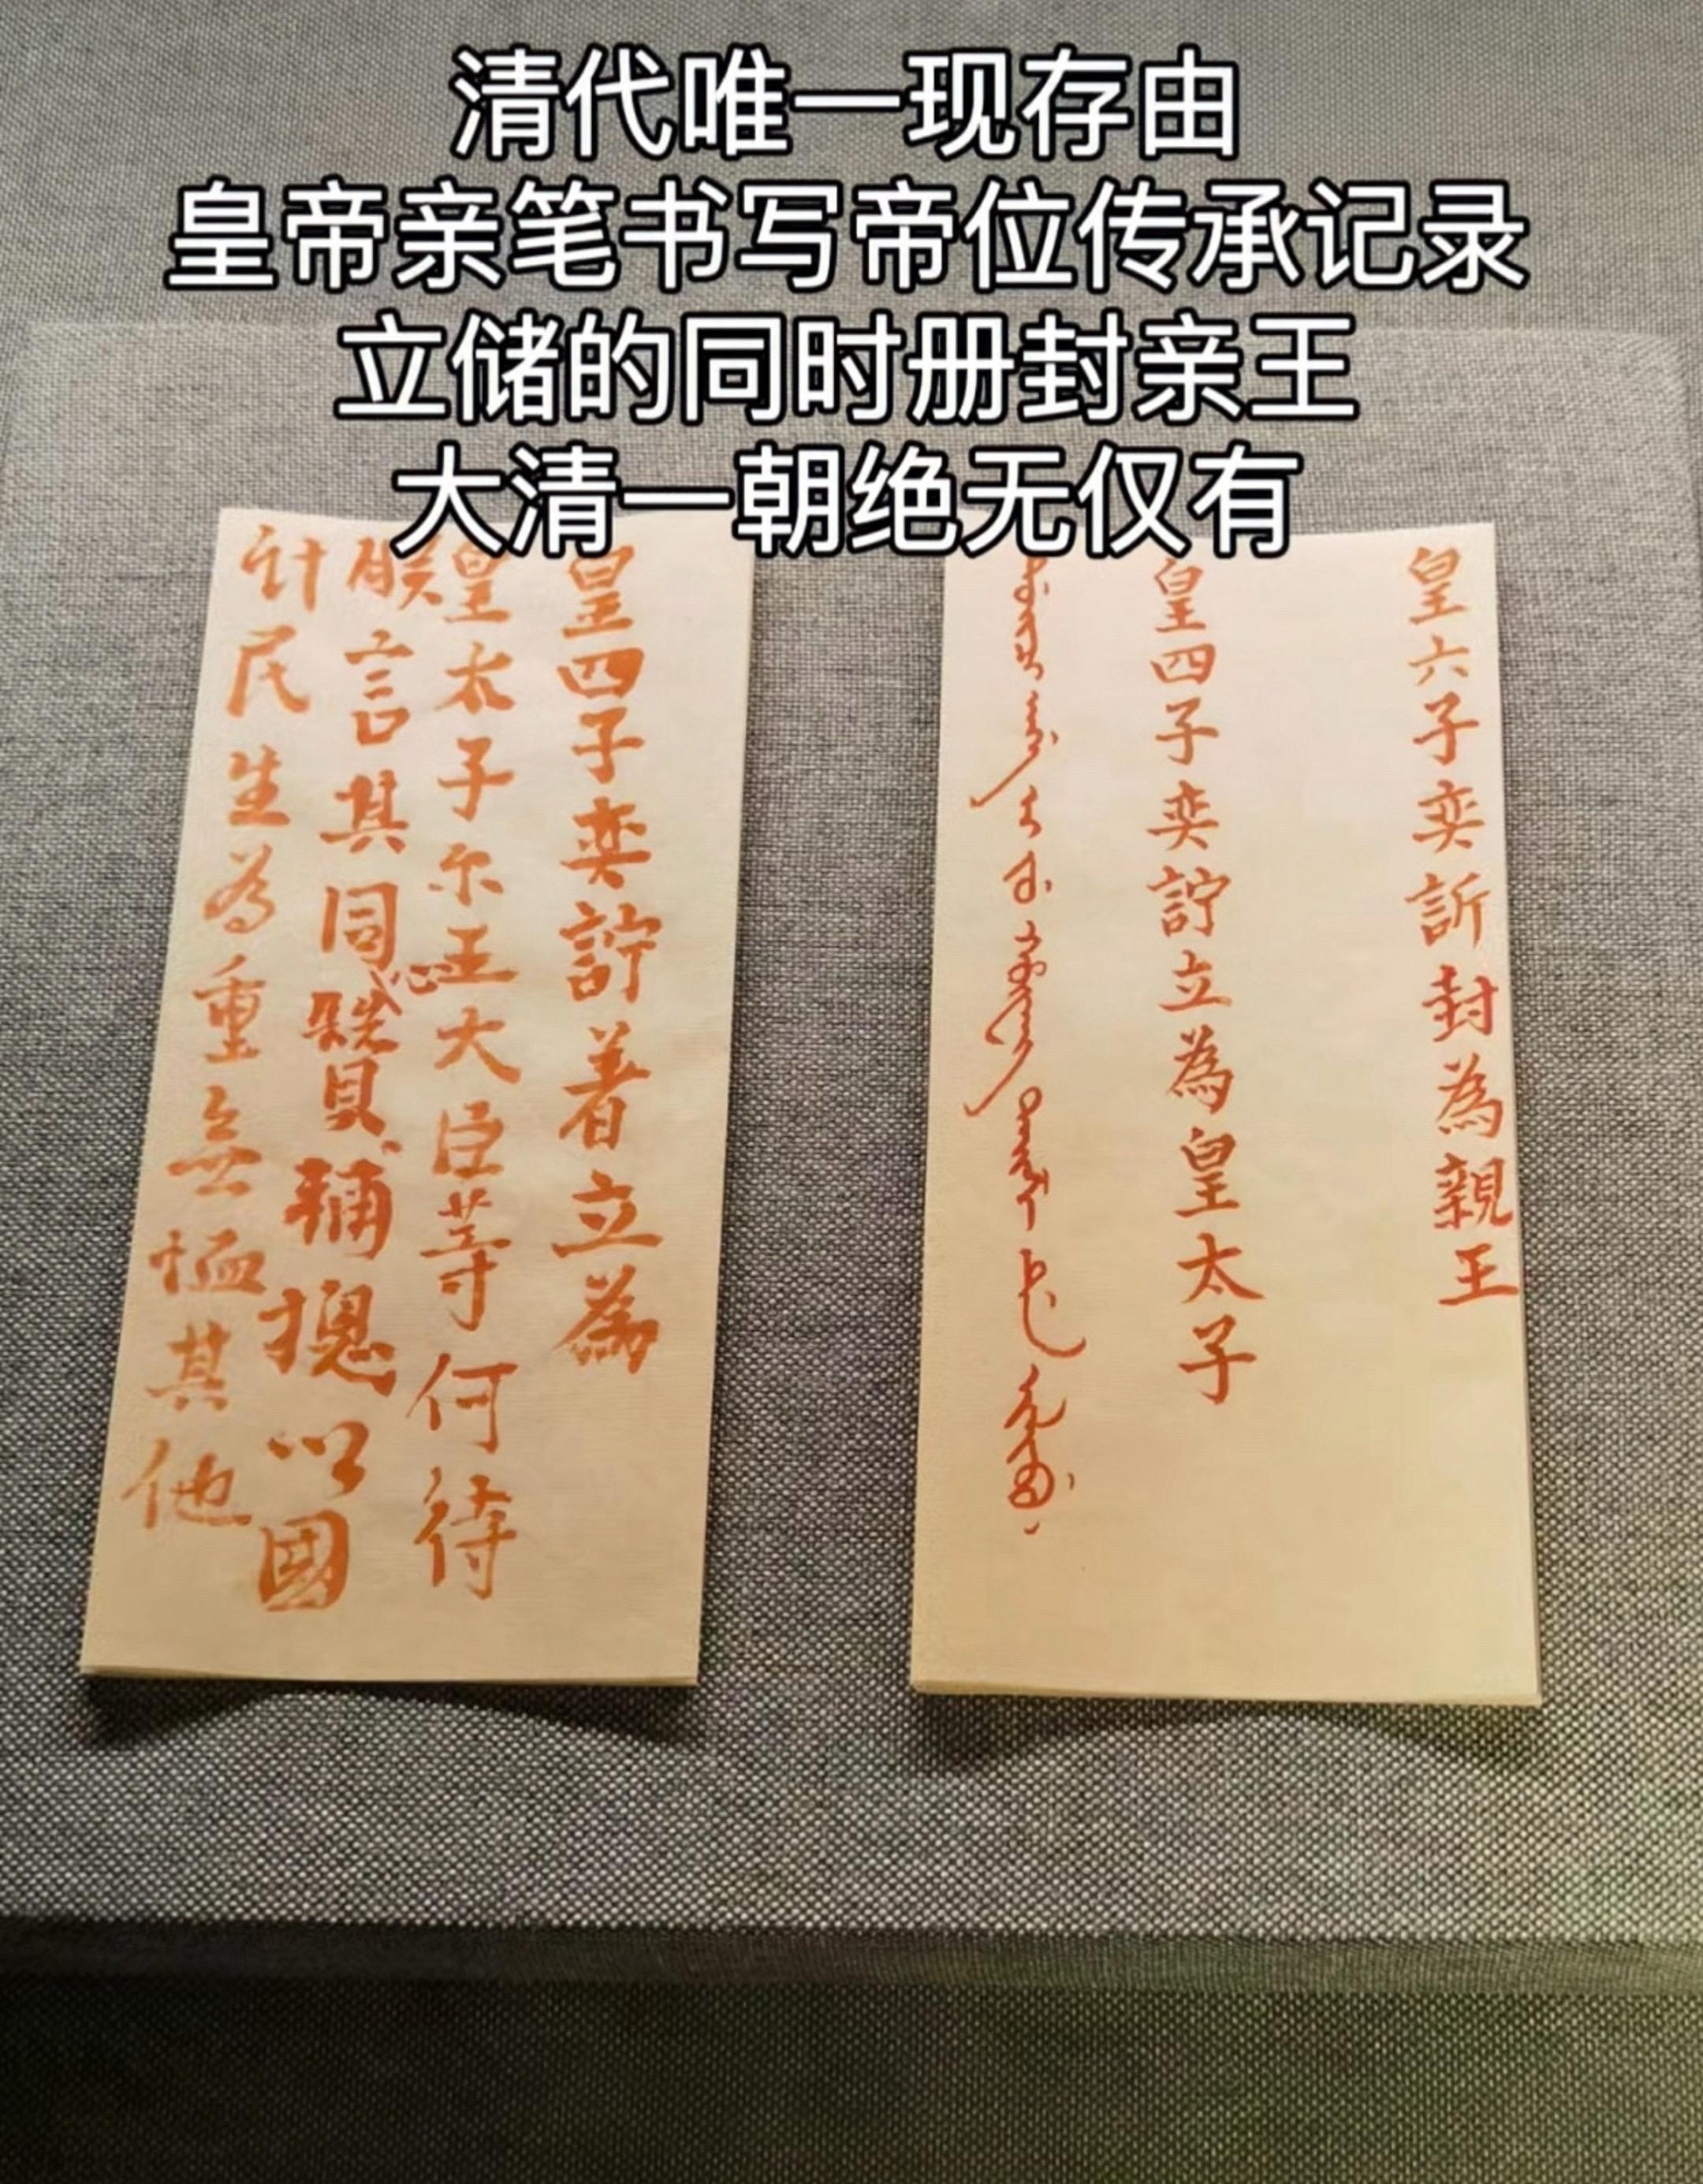 清代唯一现存由
皇帝亲笔书写帝位传承记录
立储的同时册封亲王
大清一朝绝无仅有
皇六子奕訢封為親王
皇四子奕詝立為皇太子
皇四子奕詝着立為
皇太子尔王大臣等何待
朕言其同心賛輔摠以國
计民生為重無恤其他